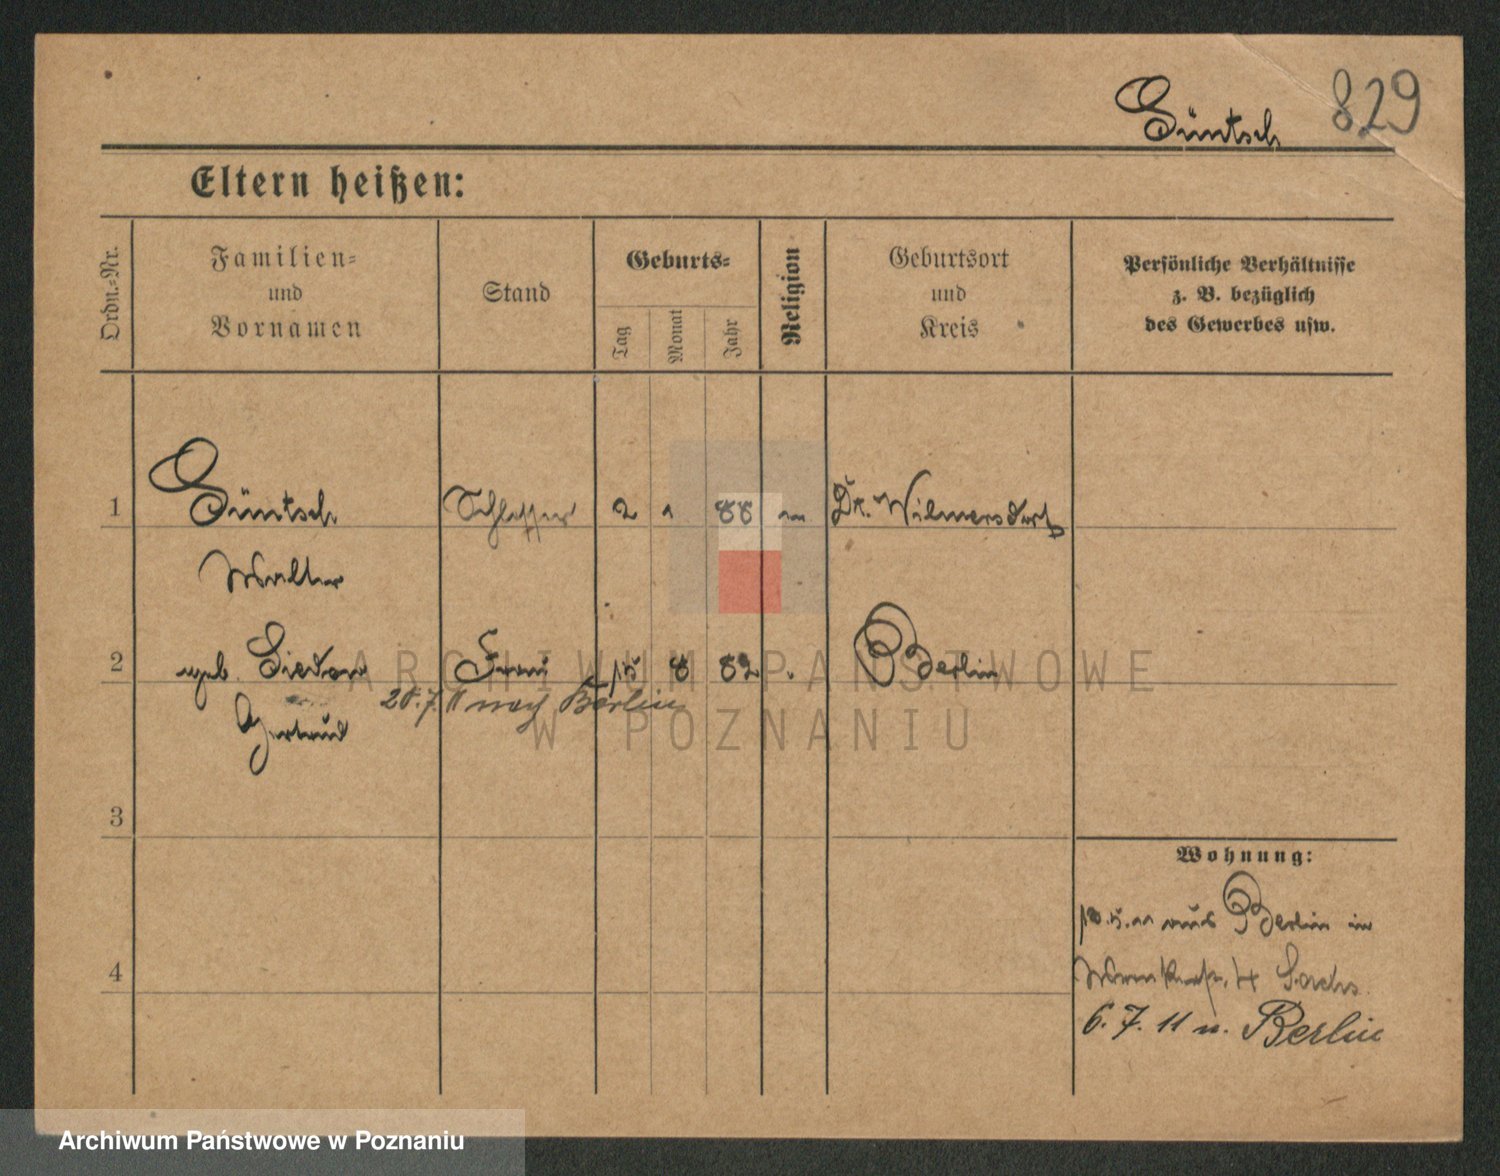 Güntsch 829
Eltern heißen:
Ordn.-Nr.
Familien-
und
Vornamen
Stand
Geburts-
Tag
Monat
Jahr
Religion
Geburtsort
und
Kreis
Persönliche Verhältnisse
z. B. bezüglich
des Gewerbes usw.
1 Güntsch Schlosser 2 1 88 Dt. Wilmersdorf
Walter
2 geb. Frau 15 8 82 Berlin
28.7.11 nach Berlin
Gertrud
3
4
Wohnung:
10.5.11 aus Berlin in
4 Sachs.
6.7.11 n. Berlin
ARCHIWUM PAŃSTWOWE
W POZNANIU
Archiwum Państwowe w Poznaniu